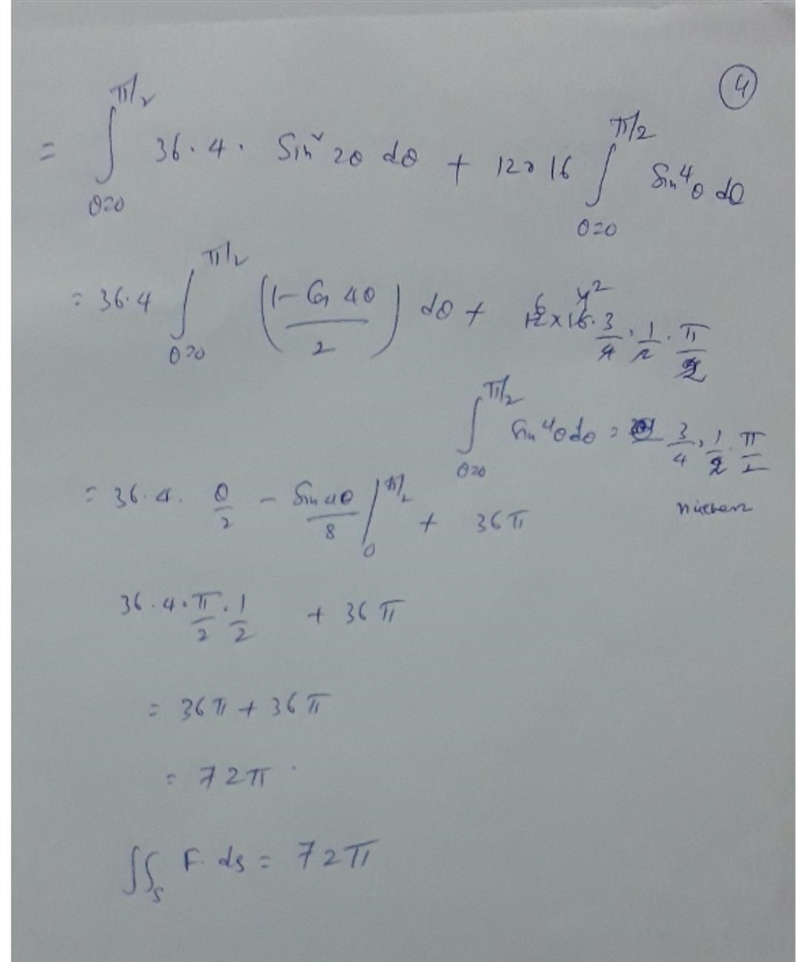 4
= ∫_{θ=0}^{π/2} 36.4. Sin² 2θ dθ + 12×16 ∫_{θ=0}^{π/2} Sin⁴θ dθ
= 36.4 ∫_{θ=0}^{π/2} (1 - Cos 4θ / 2) dθ + 12×16 . 3/4 . 1/2 . π/2
∫_{θ=0}^{π/2} Sin⁴θ dθ = 3/4 . 1/2 . π/2
= 36.4. θ/2 - Sin 4θ/8 |_0^{π/2} + 36π
36.4. π/2 . 1/2 + 36π
= 36π + 36π
= 72π
∫∫_S F. ds = 72π